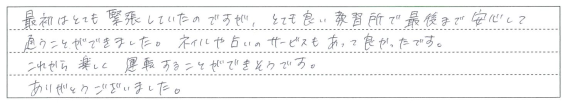 最初はとても緊張していたのですが、とても良い教習所で最後まで安心して
通うことができました。ネイルや占いのサービスもあって良かったです。
これから楽しく運転することができそうです。
ありがとうございました。